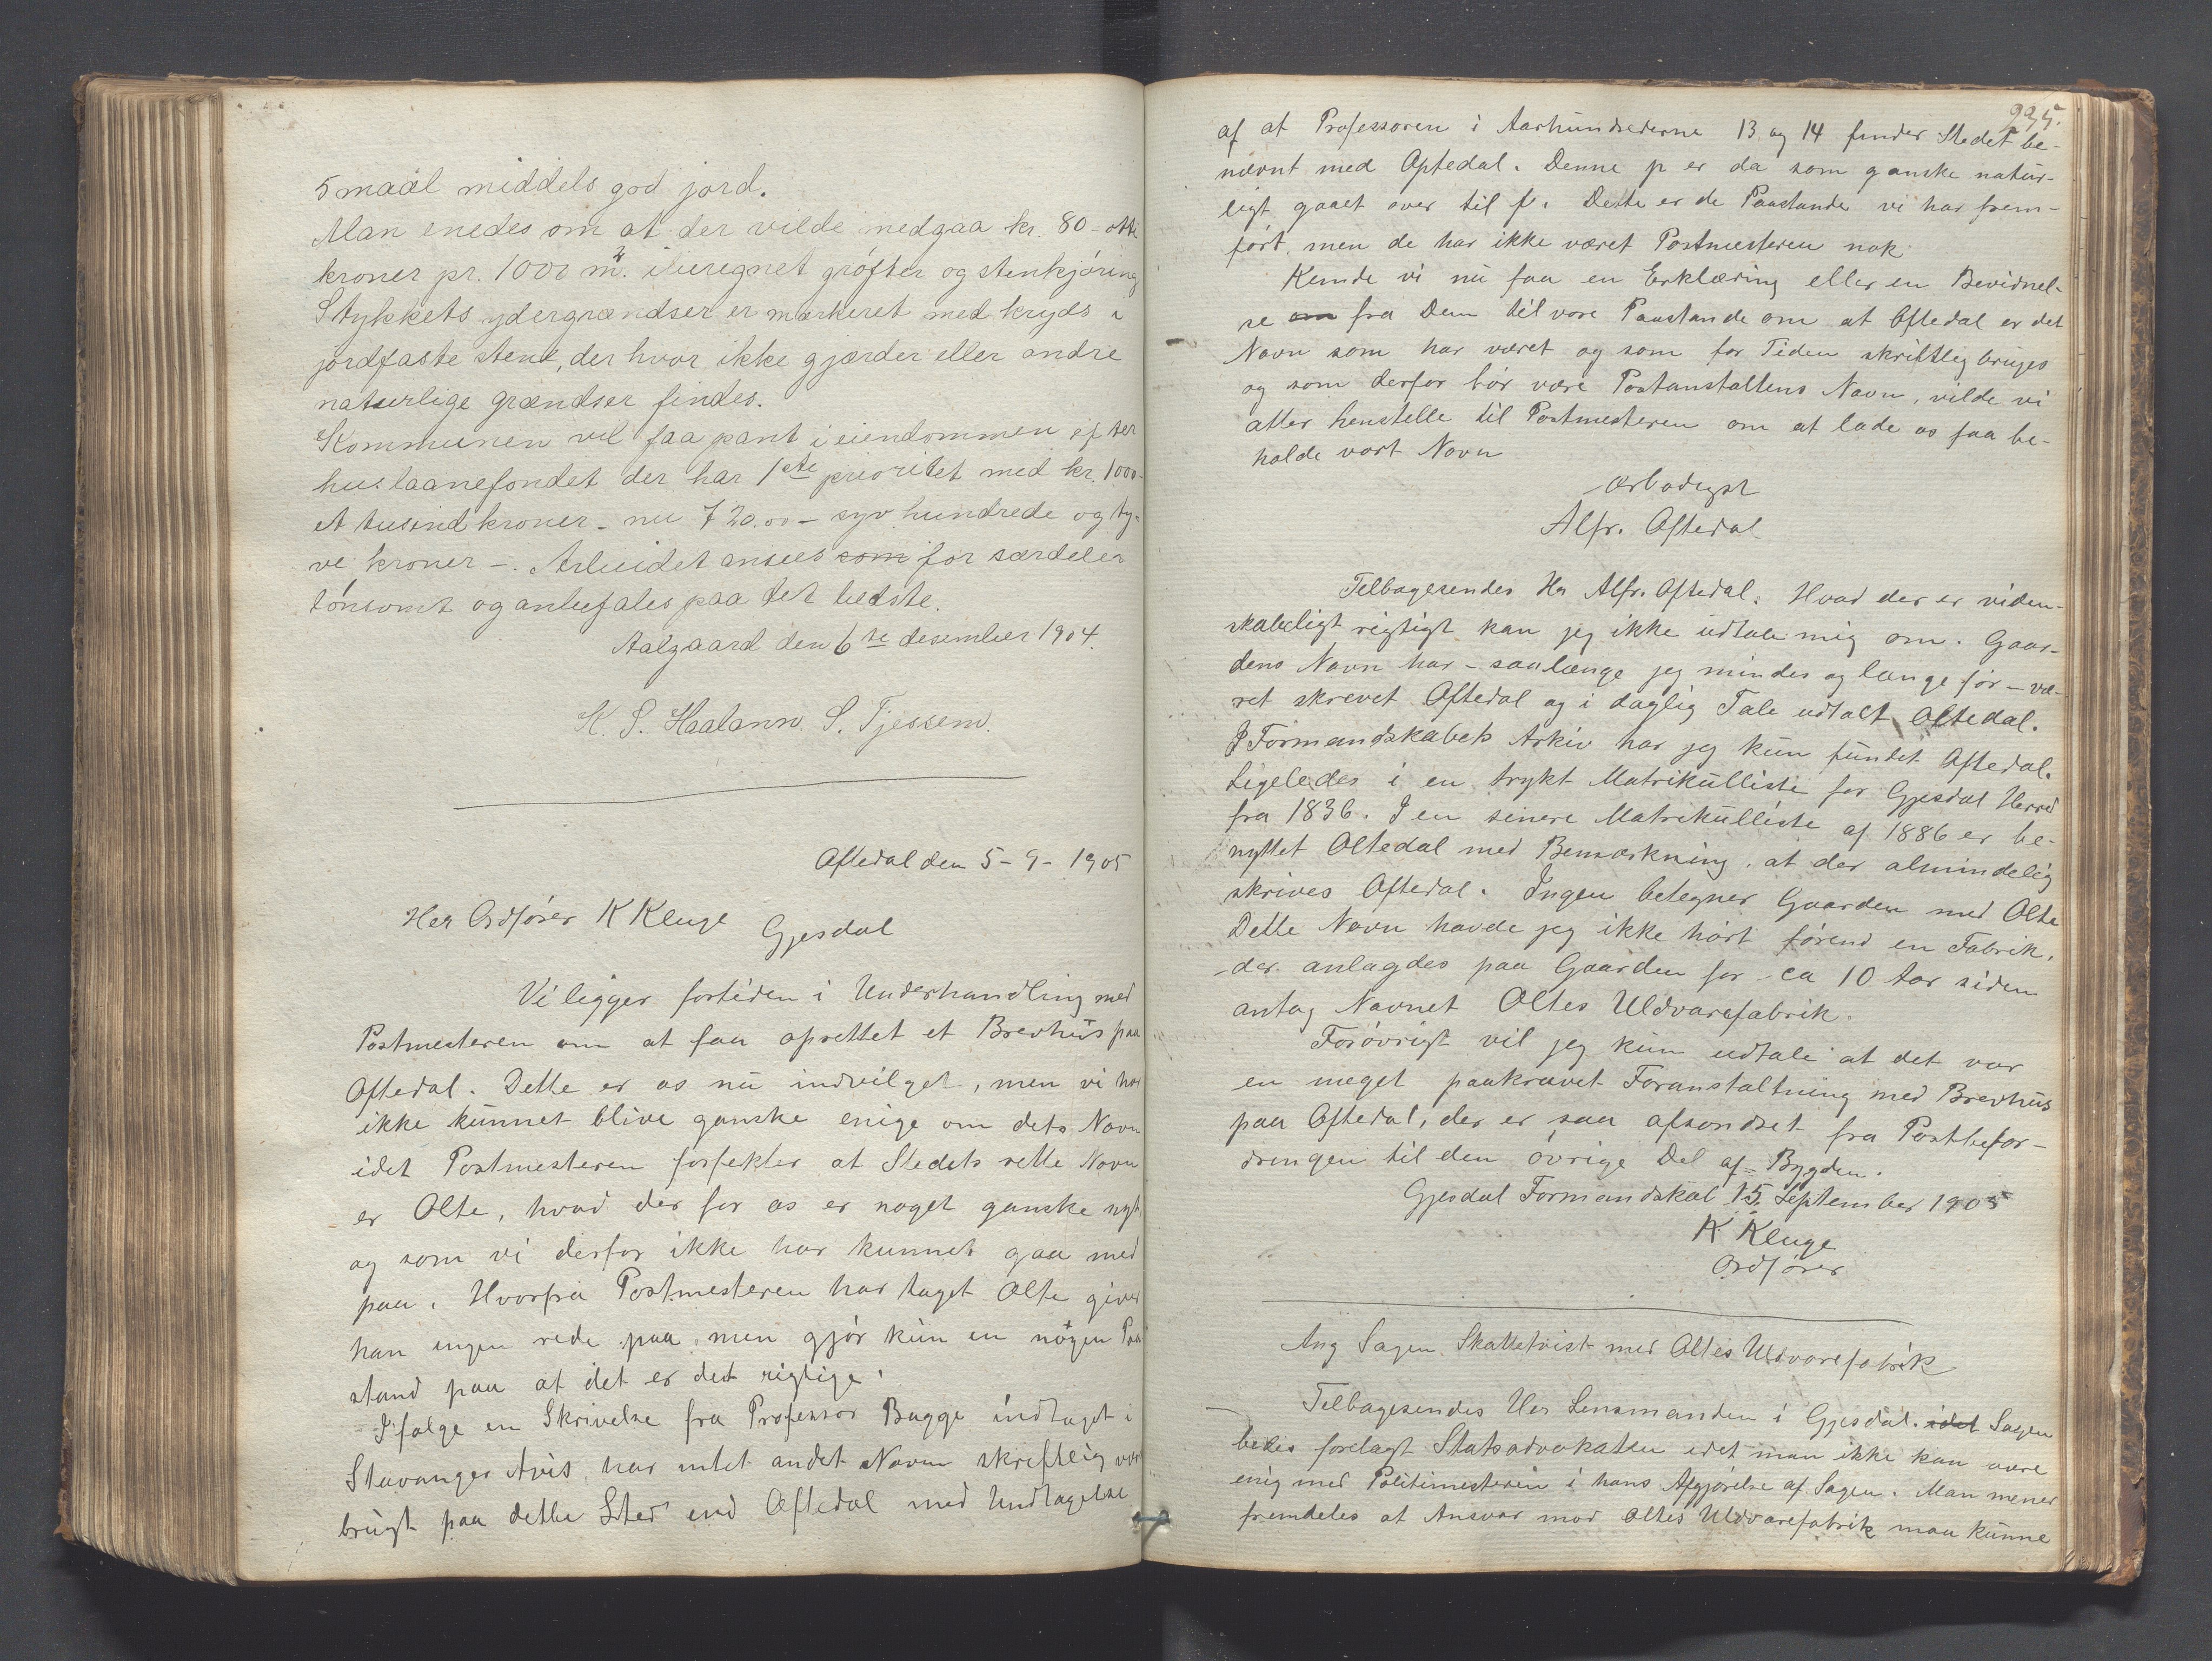 5 maal middels god jord.
Man enedes om at der vilde medgaa kr. 80 - otti
kroner pr. 1000 m². iberegnet grøfter og stenkjøring
Stykkets ydergrændser er markeret med kryds i
jordfaste stene, der hvor ikke gjærder eller andre
naturlige grændser findes.
Kommunen vil faa pant i eiendommen efter
huslaanefondet der har 1ste prioritet med kr. 1000-
et tusind kroner - nu 720.00 - syv hundrede og ty-
ve kroner -. Arbeidet ansees som for særdeles
lønsomt og anbefales paa det bedste.
Aalgaard den 6te desember 1904.
K. S. Haaland. S. Tjessem.
Oftedal den 5-9-1905
Her Ordfører K Kluge
Gjesdal
Vi ligger fortiden i Underhandling med
Postmesteren om at faa oprettet et Brevhus paa
Oftedal. Dette er os nu indvilget, men vi har
ikke kunnet blive ganske enige om dets Navn
idet Postmesteren forfekter at Stedets rette Navn
er Olte, hvad der for os er noget ganske nyt,
og som vi derfor ikke har kunnet gaa med
paa. Hvorfra Postmesteren har taget Olte giver
han ingen rede paa, men gjør kun en nøgen Paa
stand paa at det er det rigtige.
Ifølge en Skrivelse fra Professor Bugge indtaget i
Stavanger Avis har intet andet Navn skriftlig vært
brugt paa dette Sted end Oftedal med Undtagelse
235.
af at Professoren i Aarhundrederne 13 og 14 finder Stedet be-
nævnt med Optedal. Denne p er da som ganske natur-
ligt gaaet over til f. Dette er de Paastande vi har frem-
ført, men de har ikke været Postmesteren nok.
Kunde vi nu faa en Erklæring eller en Bevidnel-
se om fra Dem til vore Paastande om at Oftedal er det
Navn som har været og som for Tiden skriftlig bruges
og som derfor bør være Postanstaltens Navn, vilde vi
atter henstelle til Postmesteren om at lade os faa be-
holde vort Navn
Ærbødigst
Alfr. Oftedal
Tilbagesendes Hr Alfr. Oftedal. Hvad der er viden-
skabeligt rigtigt kan jeg ikke udtale mig om. Gaar-
dens Navn har - saalænge jeg mindes og længe før - væ-
ret skrevet Oftedal og i daglig Tale udtalt Oltedal.
I Formandskabets Arkiv har jeg kun fundet Oftedal.
Ligeledes i en trykt Matrikulliste for Gjesdal Herred
fra 1836. I en senere Matrikulliste af 1886 er be-
nyttet Oltedal med Bemærkning, at der almindelig
skrives Oftedal. Ingen betegner Gaarden med Olte
Dette Navn havde jeg ikke hørt førend en Fabrik,
der anlagdes paa Gaarden for ca 10 Aar siden
antog Navnet Oltes Uldvarefabrik.
Forøvrigt vil jeg kun udtale at det var
en meget paakrævet Foranstaltning med Brevhus
paa Oftedal, der er saa afsondret fra Postbefor-
dringen til den øvrige Del af Bygden.
Gjesdal Formandskab 15 September 1905
K Kluge
Ordfører
Ang Sagen Skattetvist med Oltes Uldvarefabrik
Tilbagesendes Her Lensmanden i Gjesdal. idet Sagen
bedes forelagt Statsadvokatten idet man ikke kan være
enig med Politimesteren i hans Afgjørelse af Sagen. Man mener
fremdeles at Ansvar mod Oltes Uldvarefabrik maa kunne